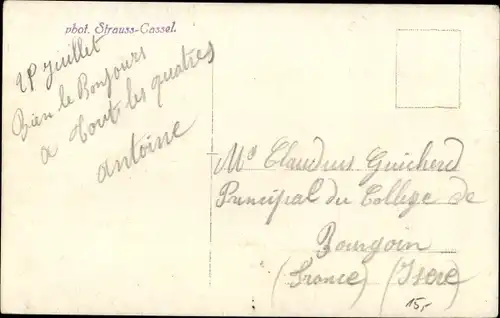 phot. Strauss-Cassel.
Juillet
Bien le Bonjours
a Tout les quatres
Antoine
Mr Claudius Guicherd
Principal du College de
Bourgoin
(France) (Isere)
15,-